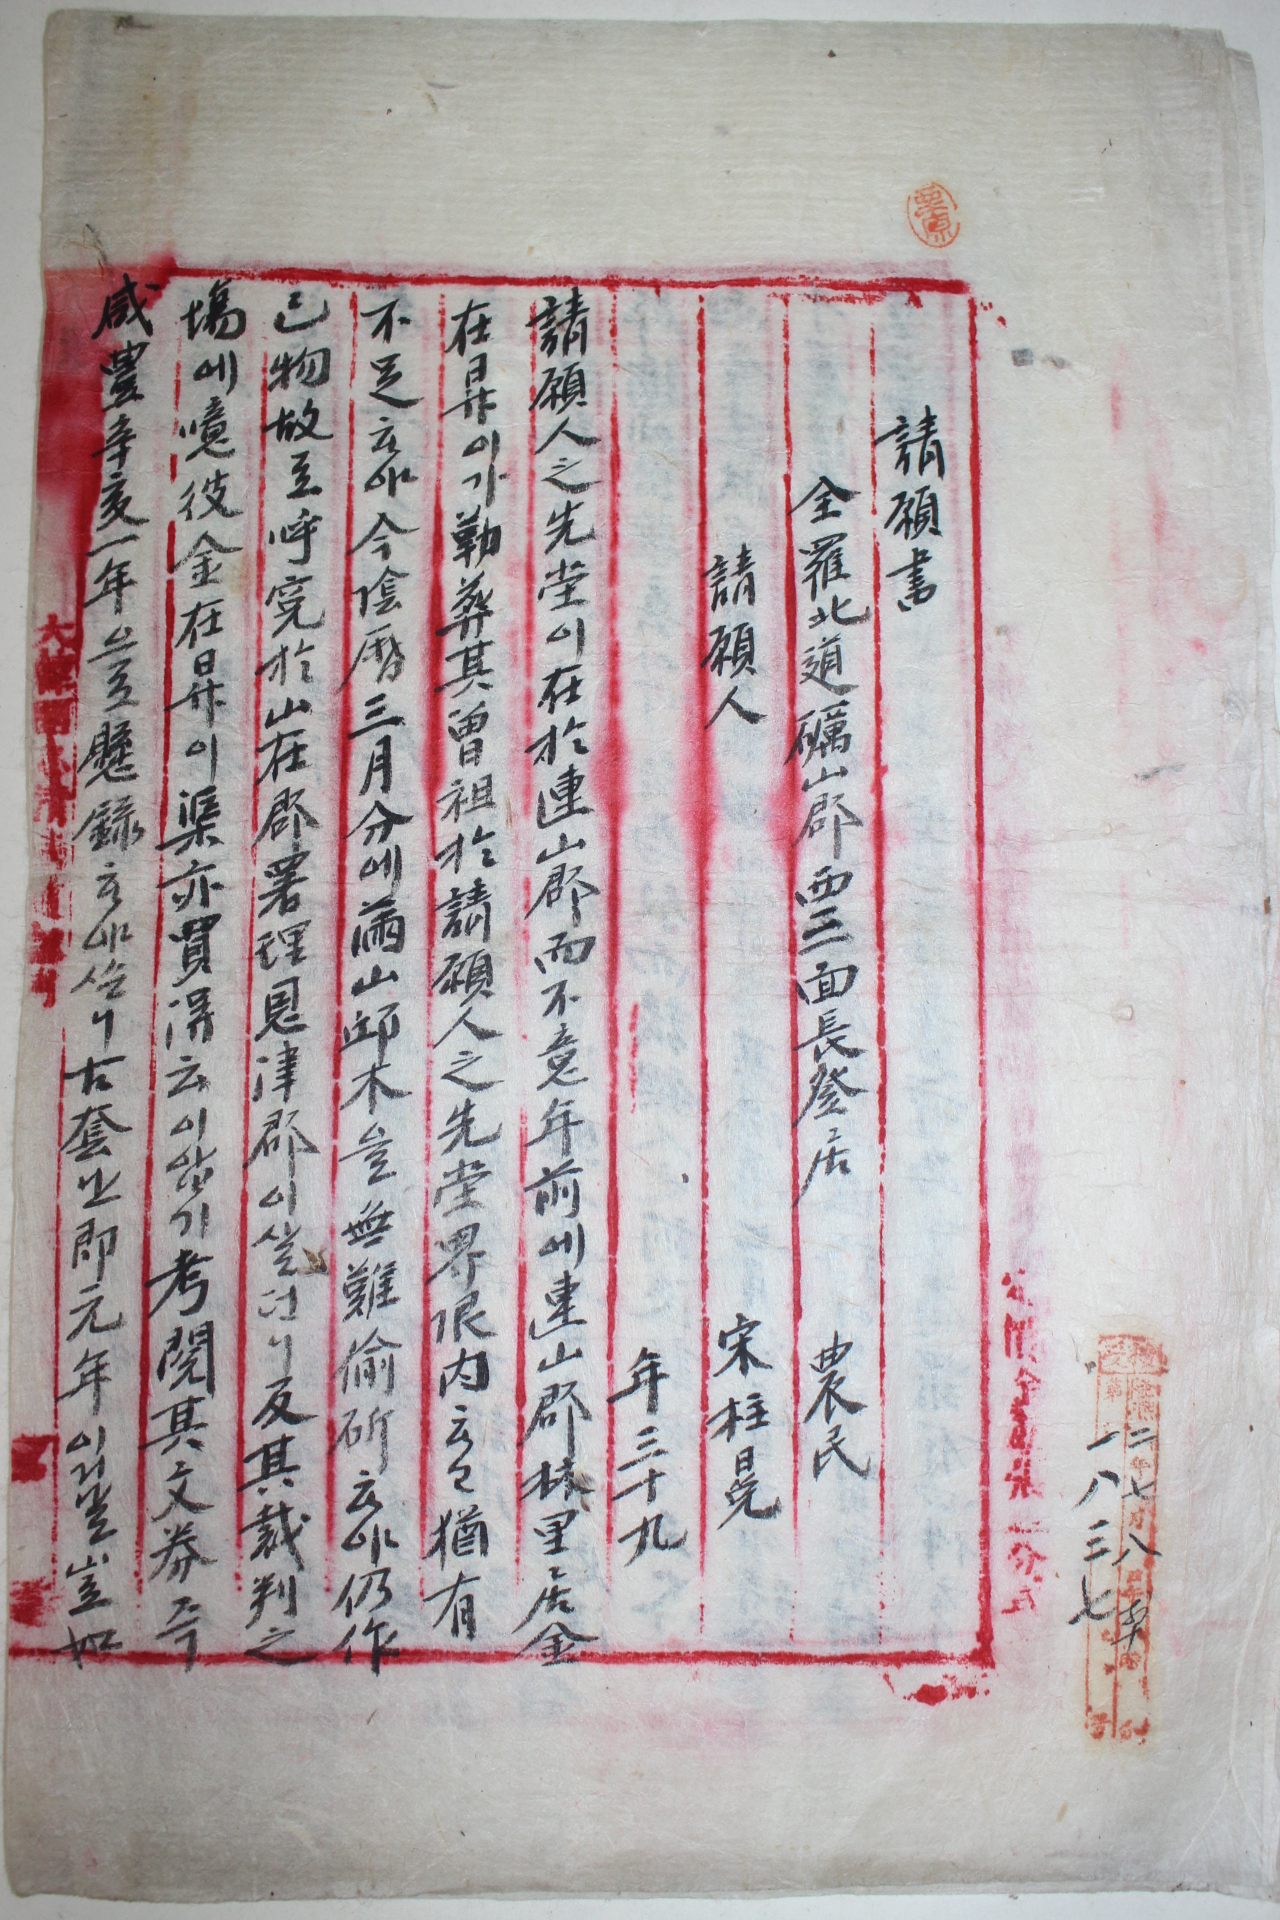 請願書
全羅北道礪山郡西三面長登居 農民
請願人 宋柱晃
年三十九
請願人之先塋이在於連山郡而不意年前에連山郡林里居金
在昇이가勒葬其曾祖於請願人之先塋界限內음고猶有
不足하야今陰曆三月分에兩山邱木을無難偷斫하야仍作
己物故로呼寃於山在郡署理恩津郡이삽더니反其裁判之
場에噫彼金在昇이渠亦買得云이압기考閱其文券즉
咸豊辛亥一年으로懸錄하야스니古套난即元年이거날豈如
栗原
二年七月八
一八三七